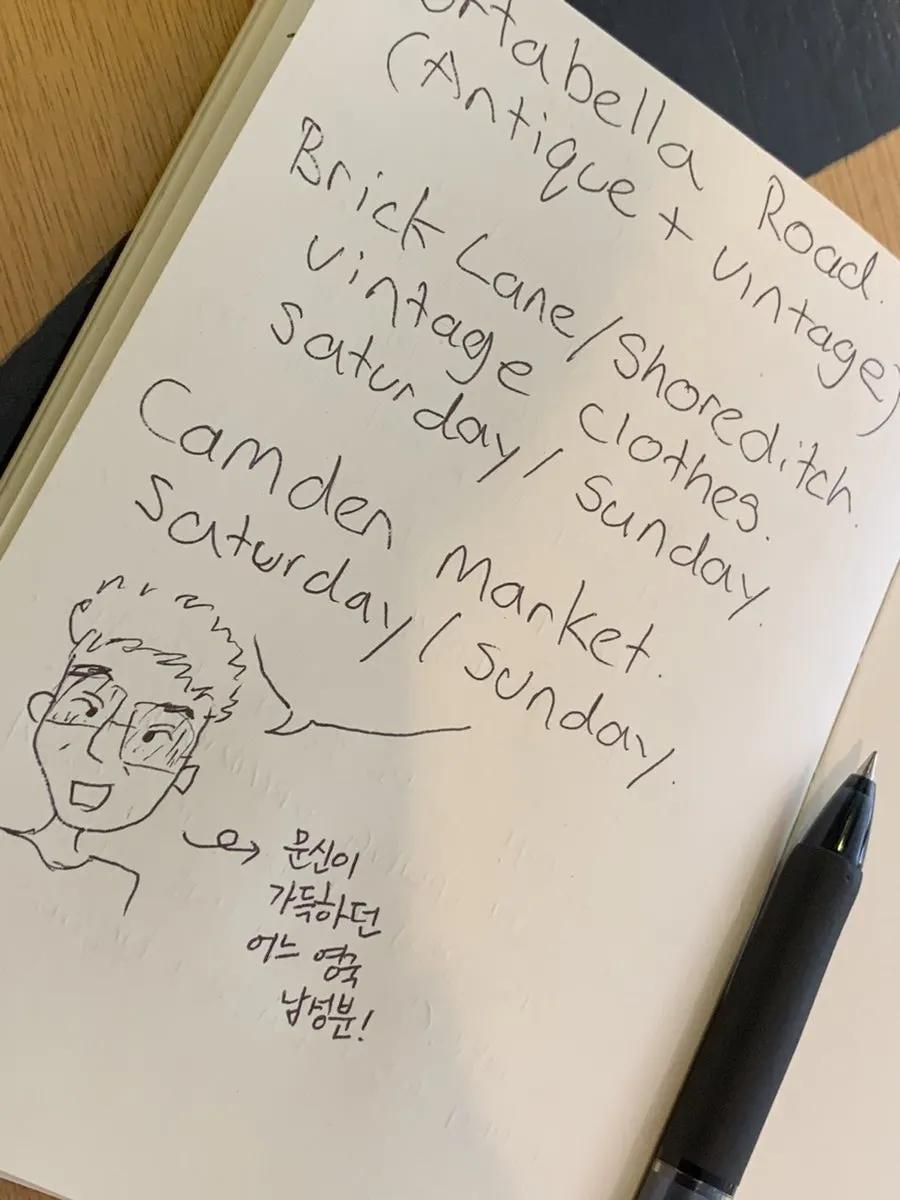 ortabella Road.
(Antique + vintage)
Brick Lane/Shoreditch.
vintage clothes.
Saturday/Sunday.
Camden Market.
Saturday/Sunday.
문신이
가득하던
어느 영국
남성분!